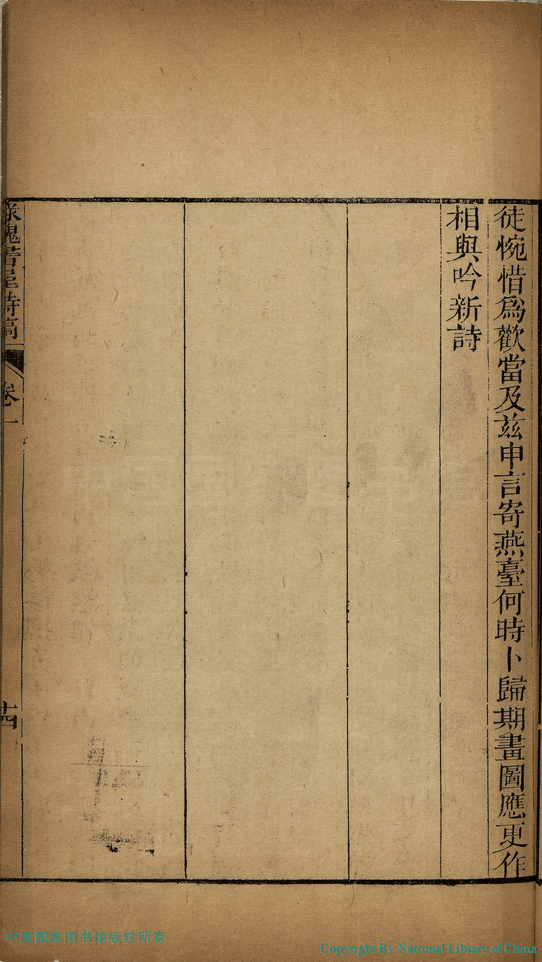 徒惋惜爲歡當及茲申言寄燕臺何時卜歸期畫圖應更作
相與吟新詩
槐書屋詩稿
卷一
十四
中国国家图书馆版权所有
Copyright By National Library of China